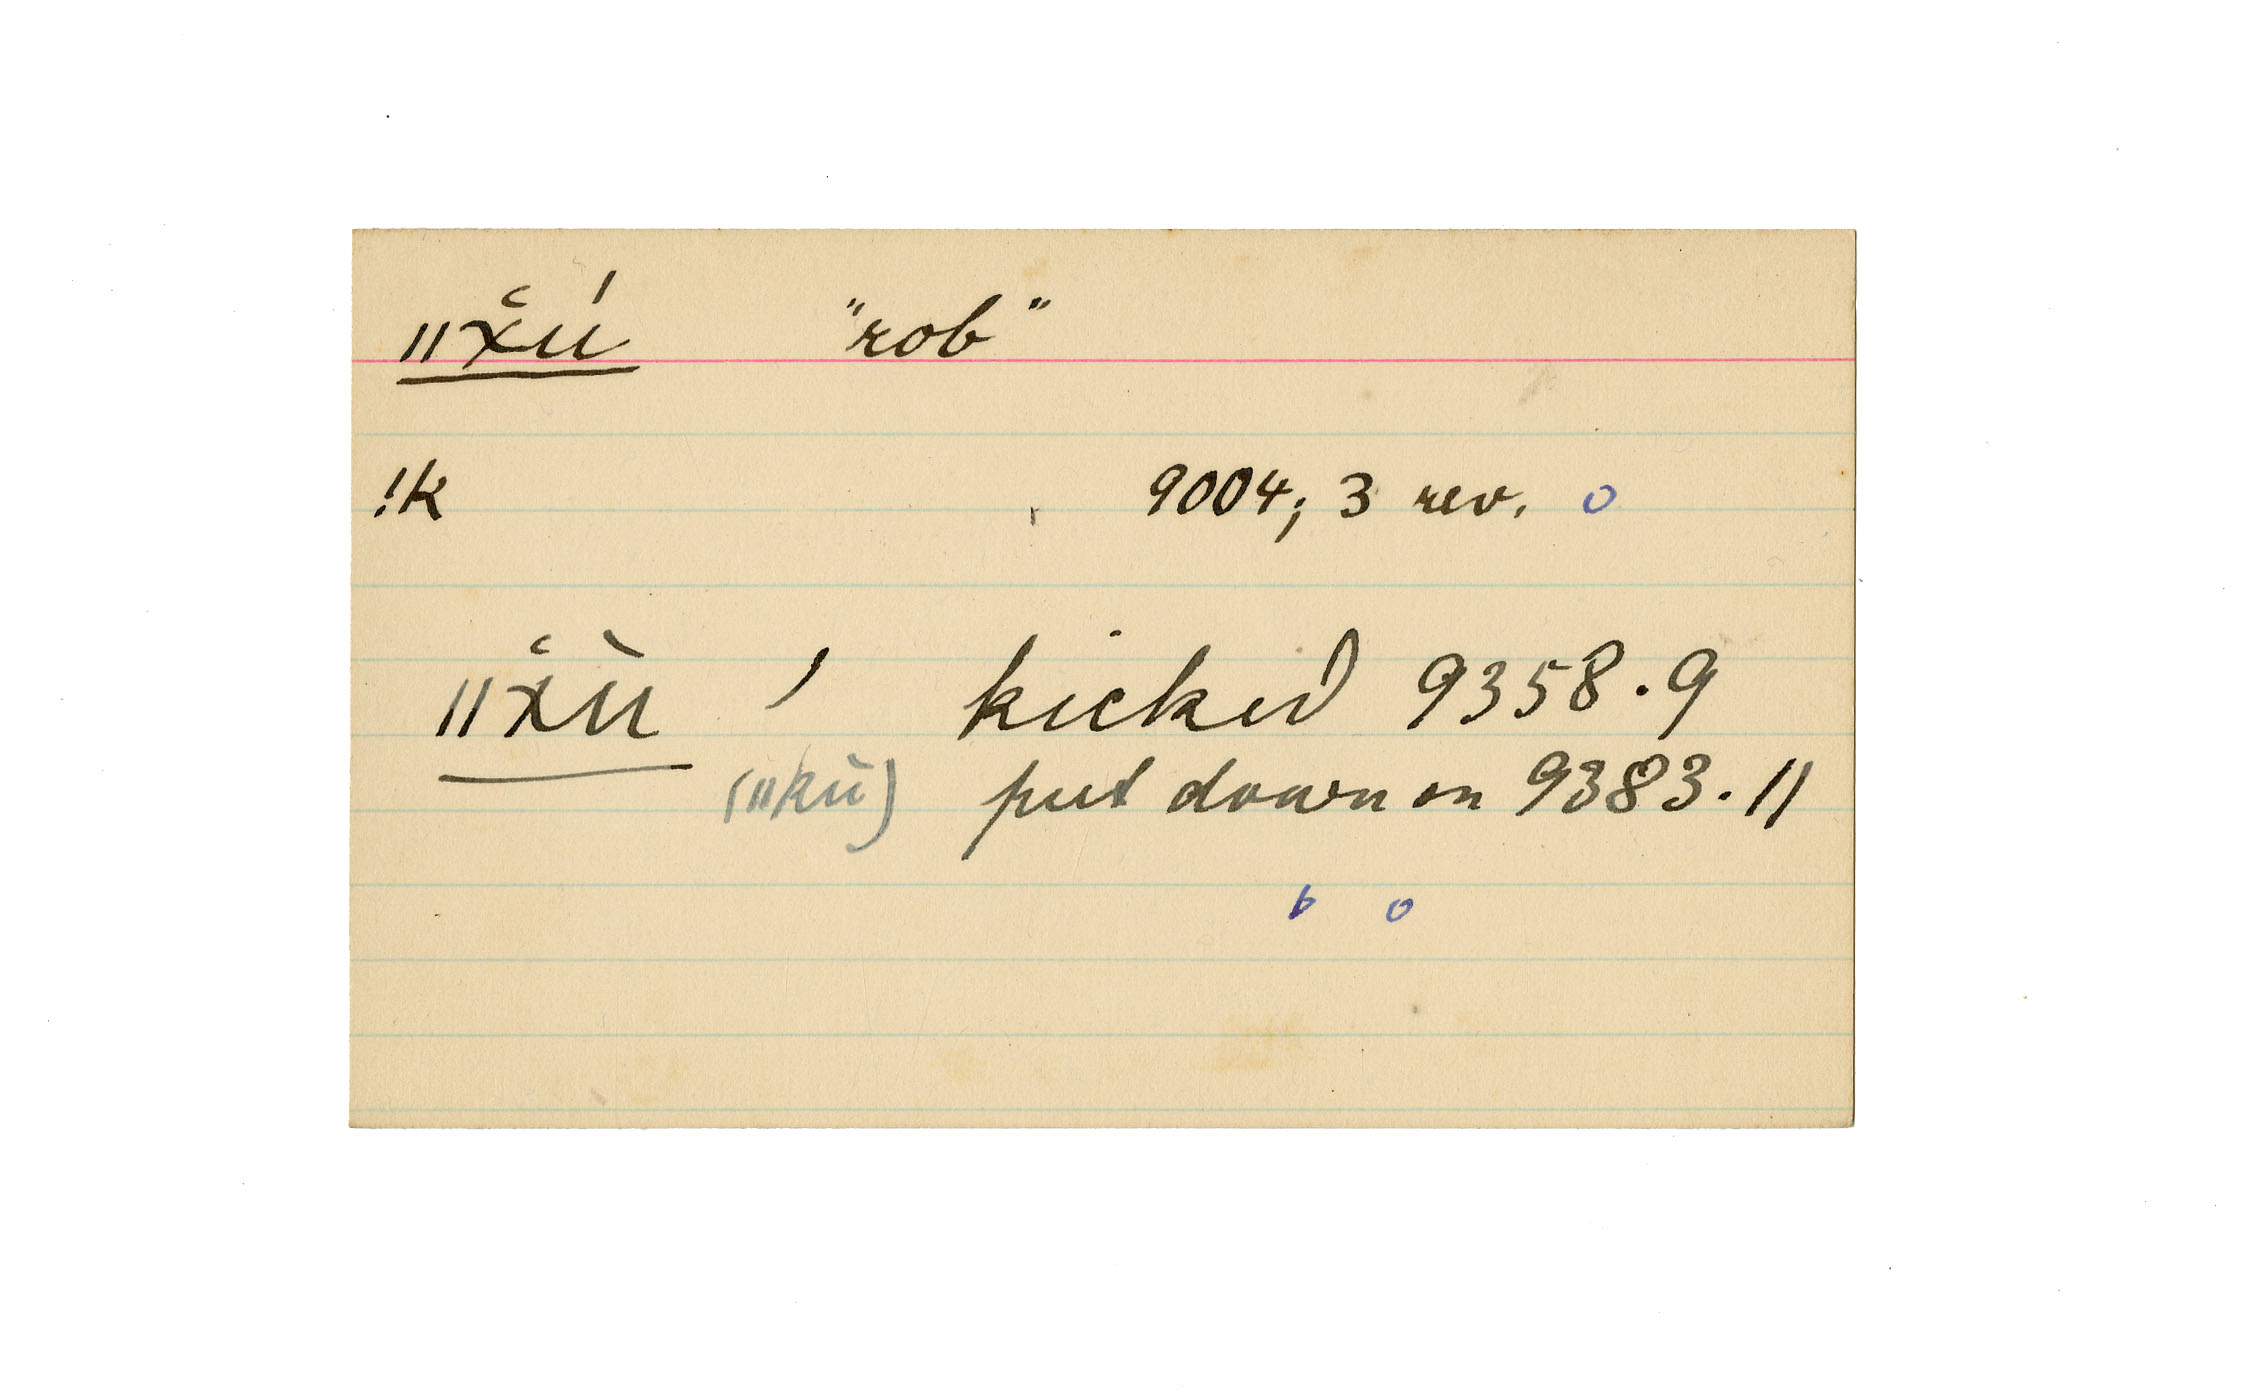 ǁx̆ú "rob"
!k 9004; 3 rev. o
ǁx̆ù / kicked 9358.9
(ǁkù) put down on 9383.11
b o